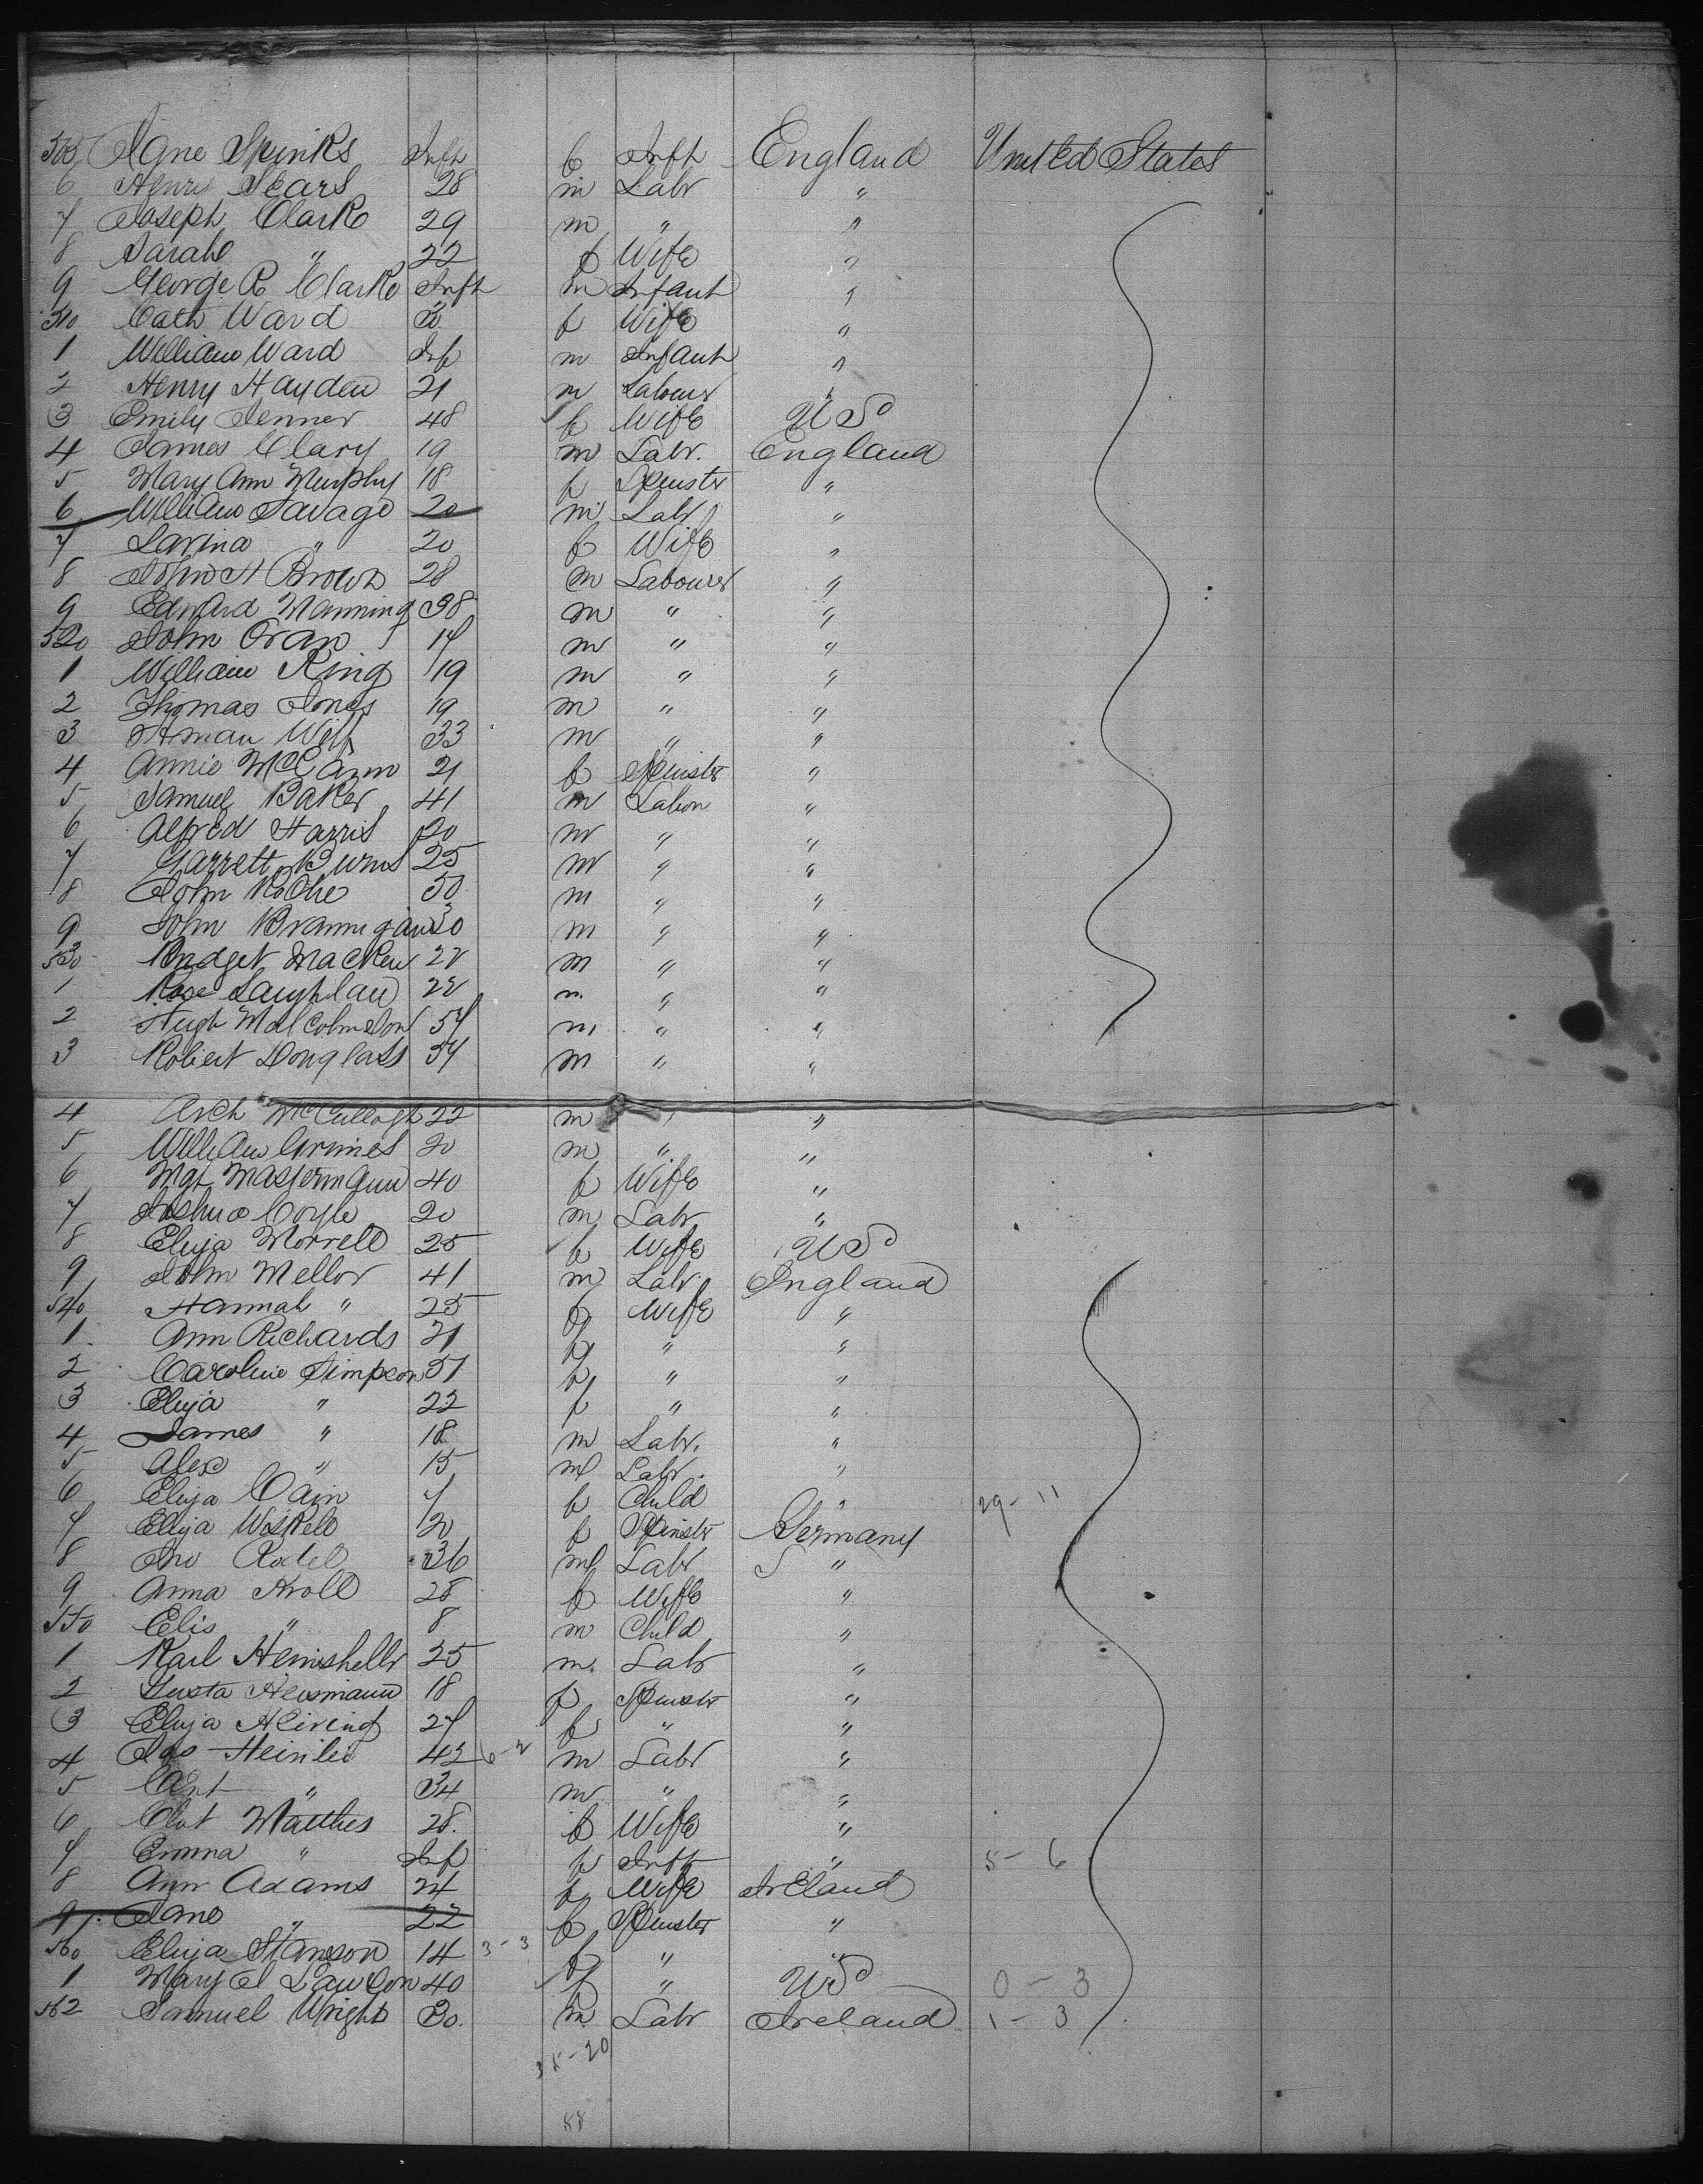 505 Jane Spinks Infh f Infh England United States
6 Henry Sears 28 m Labr "
7 Joseph Clark 29 m " "
8 Sarah " 22 f Wife "
9 George R Clark Infh m Infant "
510 Cath Ward f Wife "
1 William Ward Inf m Infant "
2 Henry Hayden 21 m Labour "
3 Emily Jenner 48 f Wife US
4 James Clary 19 m Labr. England
5 Mary Ann Murphy 18 f Spinstr "
6 William Savage 20 m Labr "
7 Lavina " 20 f Wife "
8 John H Brown 28 m Labourer "
9 Edward Manning 38 m " "
520 John Oran 17 m " "
1 William King 19 m " "
2 Thomas Jones 19 m " "
3 33 m " "
4 Annie McCann 21 f Spinstr "
5 Samuel Baker 41 m Labor "
6 Alfred Harris 20 m " "
7 Garrett Burns 25 m " "
8 John Roche 50 m " "
9 John Brannigan 30 m " "
530 Bridget Macken 22 m " "
1 Rose Laughlan 22 m " "
2 Hugh Malcolmson 57 m " "
3 Robert Douglass 54 m " "
4 Arch McCullogh 22 m " "
5 William Grimes 20 m " "
6 Mgt Mastermann 40 f Wife "
7 Joshua Coyle 20 m Labr "
8 Eliza Morrell 25 f Wife US
9 John Mellor 41 m Labr. England
540 Hannah " 25 f Wife "
1 Ann Richards 21 f " "
2 Caroline Simpson 51 f " "
3 Eliza " 22 f " "
4 James " 18 m Labr. "
5 Alex " 15 m Labr. "
6 Eliza Cain 7 f Child " 29-11
7 Eliza Wiskell 20 f Spinstr Germany
8 Jno Rodel 36 m Labr "
9 Anna Kroll 28 f Wife "
550 Elis " 8 m Child "
1 Karl Heinshellr 25 m. Labr "
2 Gusta Heismann 18 f Spinstr "
3 Eliza Heiring 27 f " "
4 Heinlei 42 6-2 m Labr "
5 " 34 m " "
6 Matthes 28. f Wife "
7 Emma " Inf f Infh " 5-6
8 Ann Adams 24 f Wife Ireland
9 Jane " 22 f Spinster "
560 Eliza Stanson 14 3-3 f " "
1 Mary E Lawson 40 f " US 0-3
562 Samuel Wright 30. m Labr Ireland 1-3
35-20
58